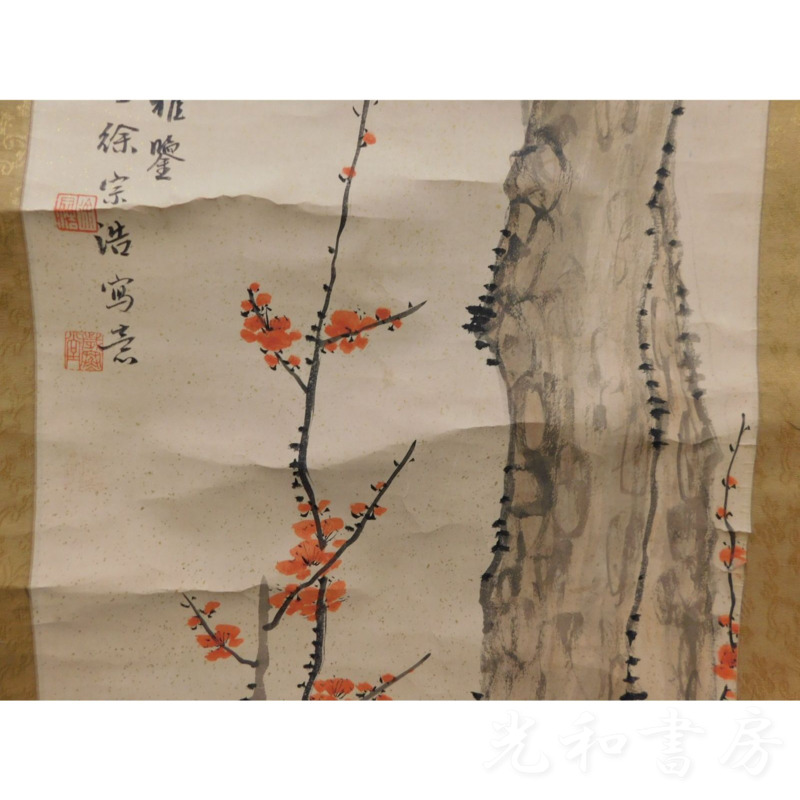 雅鑒
徐宗浩寫意
光和書房